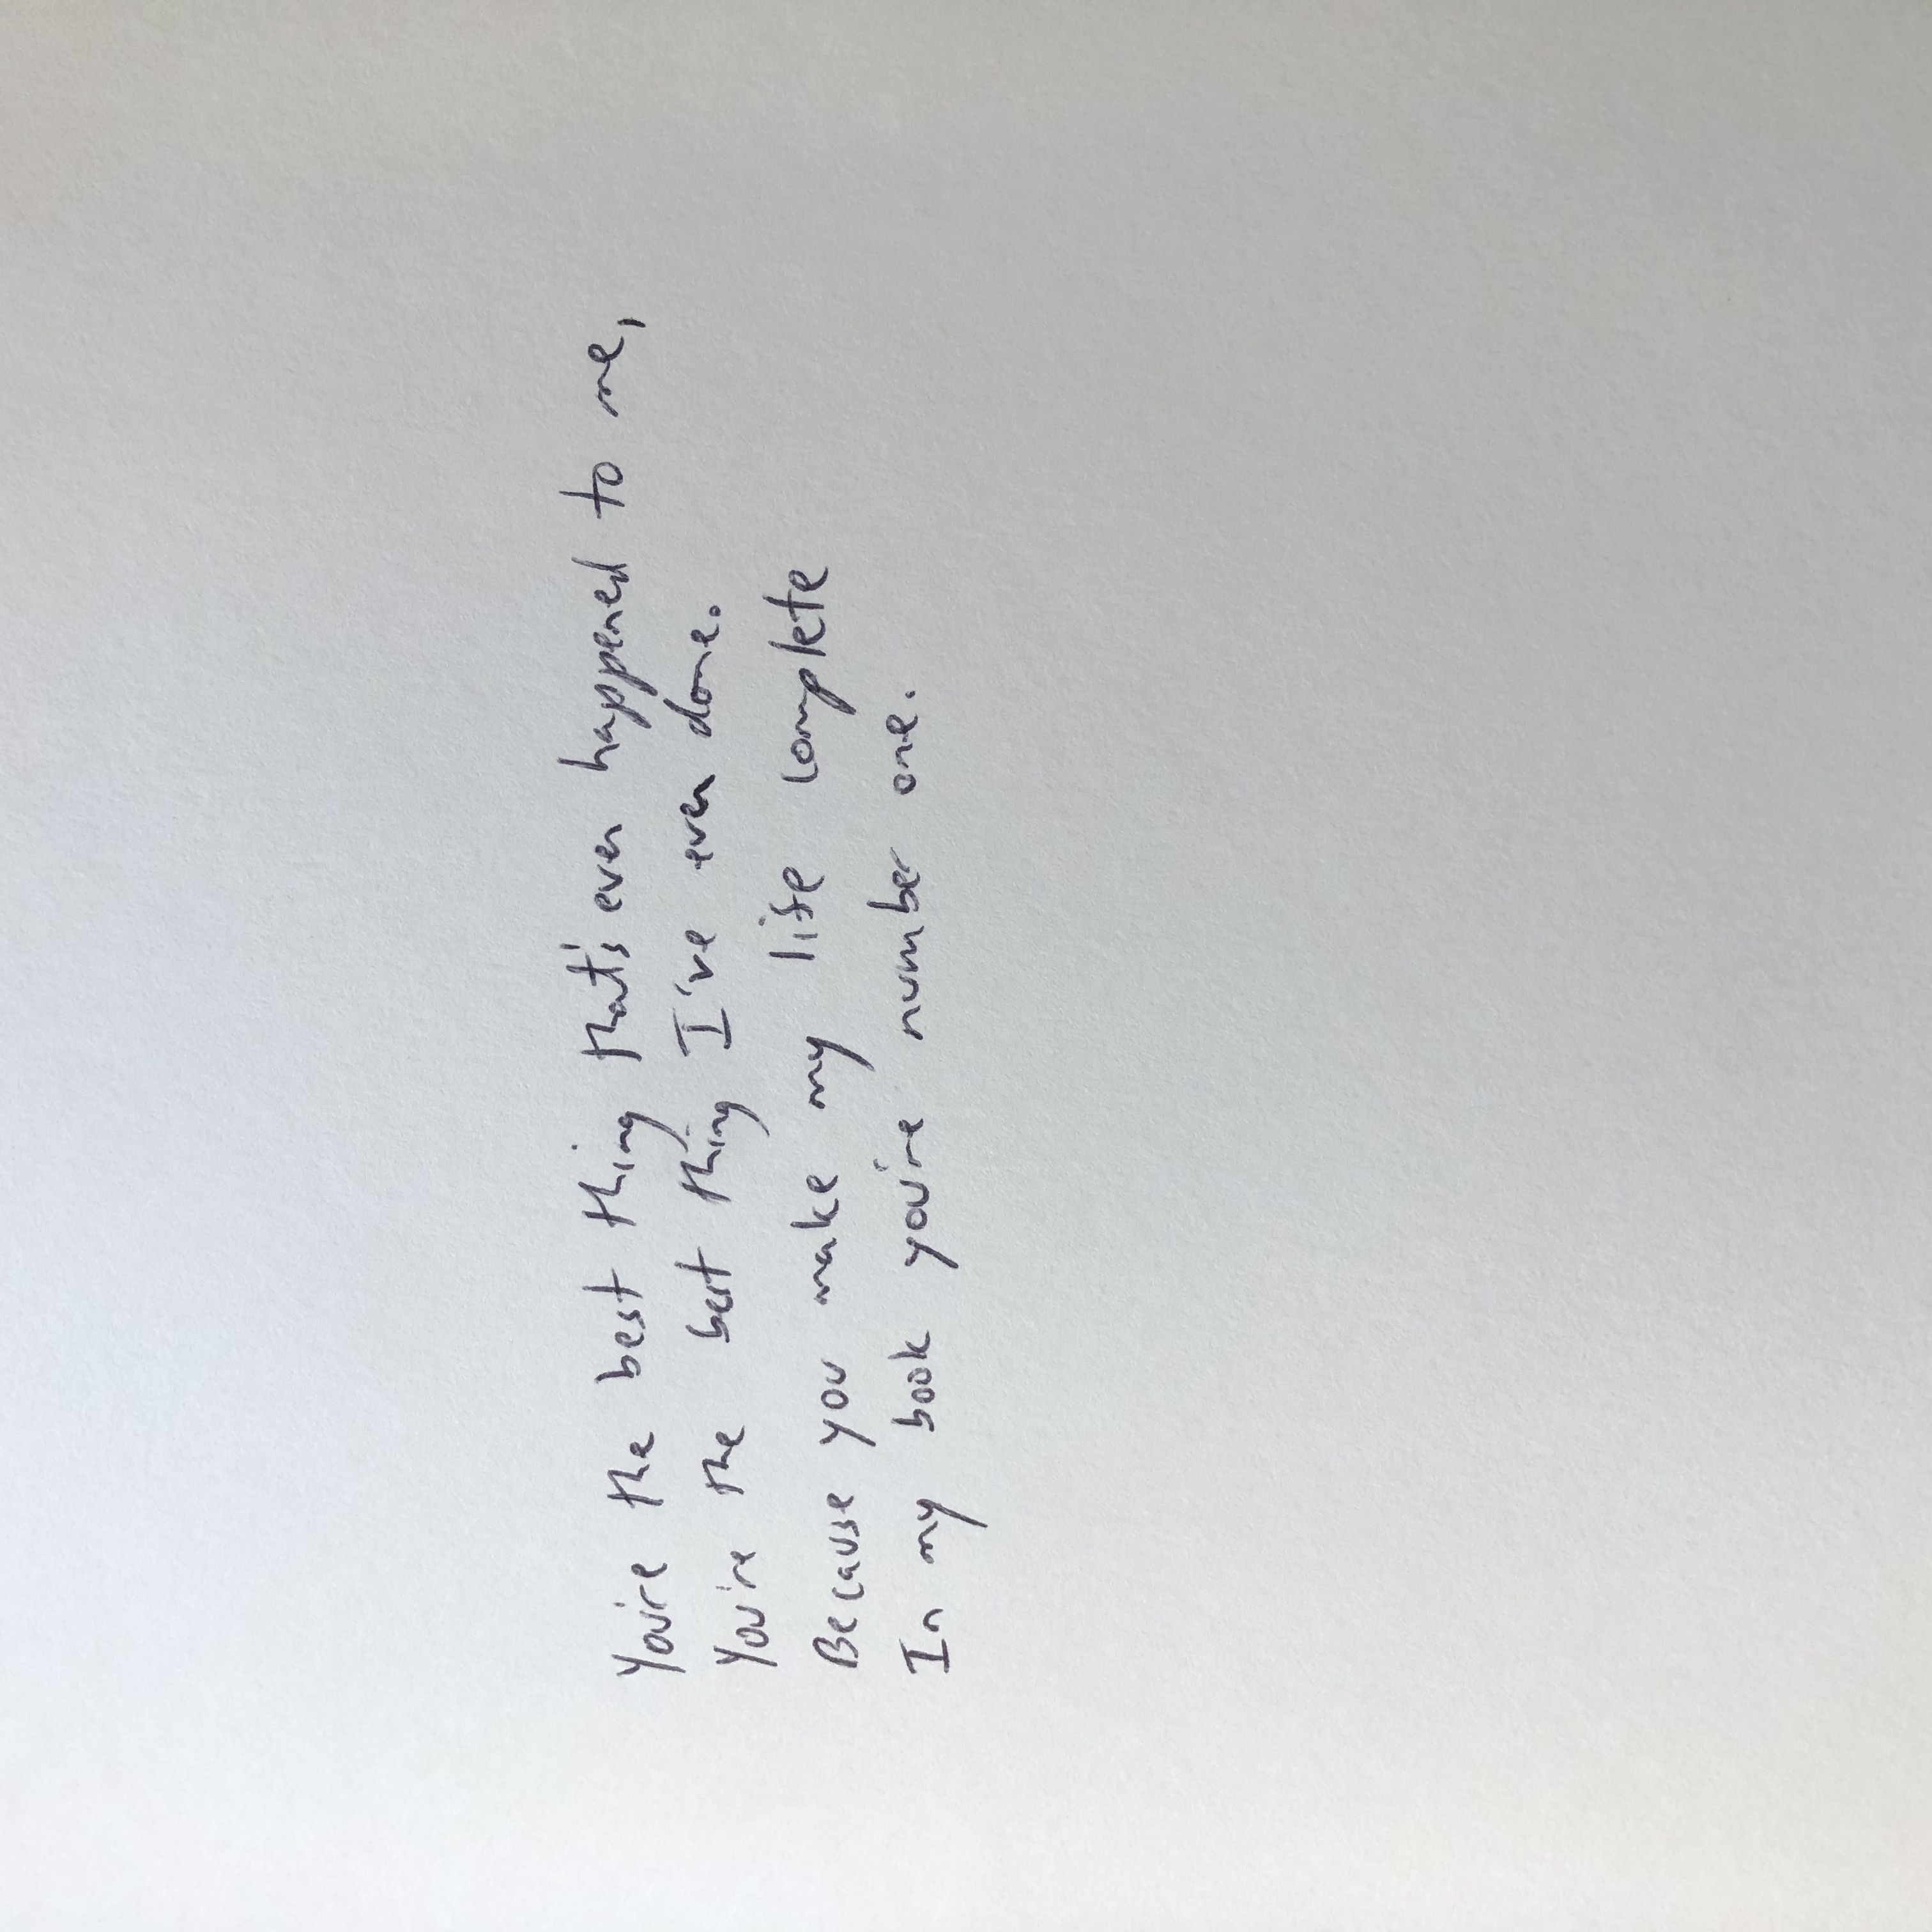 You're the best thing that's ever happened to me,
You're the best thing I've ever done.
Because you make my life complete
In my book you're number one.